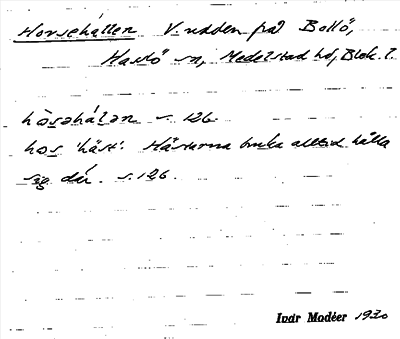 Horsehállen V. udden på Bollö,
Hasslö sn, Medelstad hd, Blek. l.
hòsəhálən s. 126
hos 'häst'. Hästarna bruka alltid hålla
sig där. s. 126.
Ivar Modéer 1930